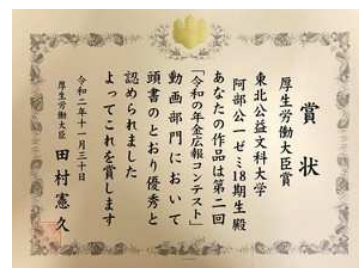 賞状
厚生労働大臣賞
東北公益文科大学
阿部公一ゼミ18期生殿
あなたの作品は第二回
「令和の年金広報コンテスト」
動画部門において
頭書のとおり優秀と
認められました
よってこれを賞します
令和二年十一月三十日
厚生労働大臣 田村憲久